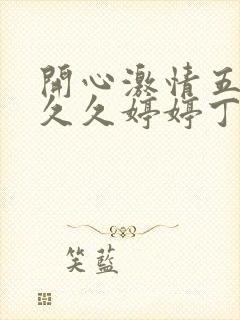 開心激情五
久久婷婷丁
笑藍